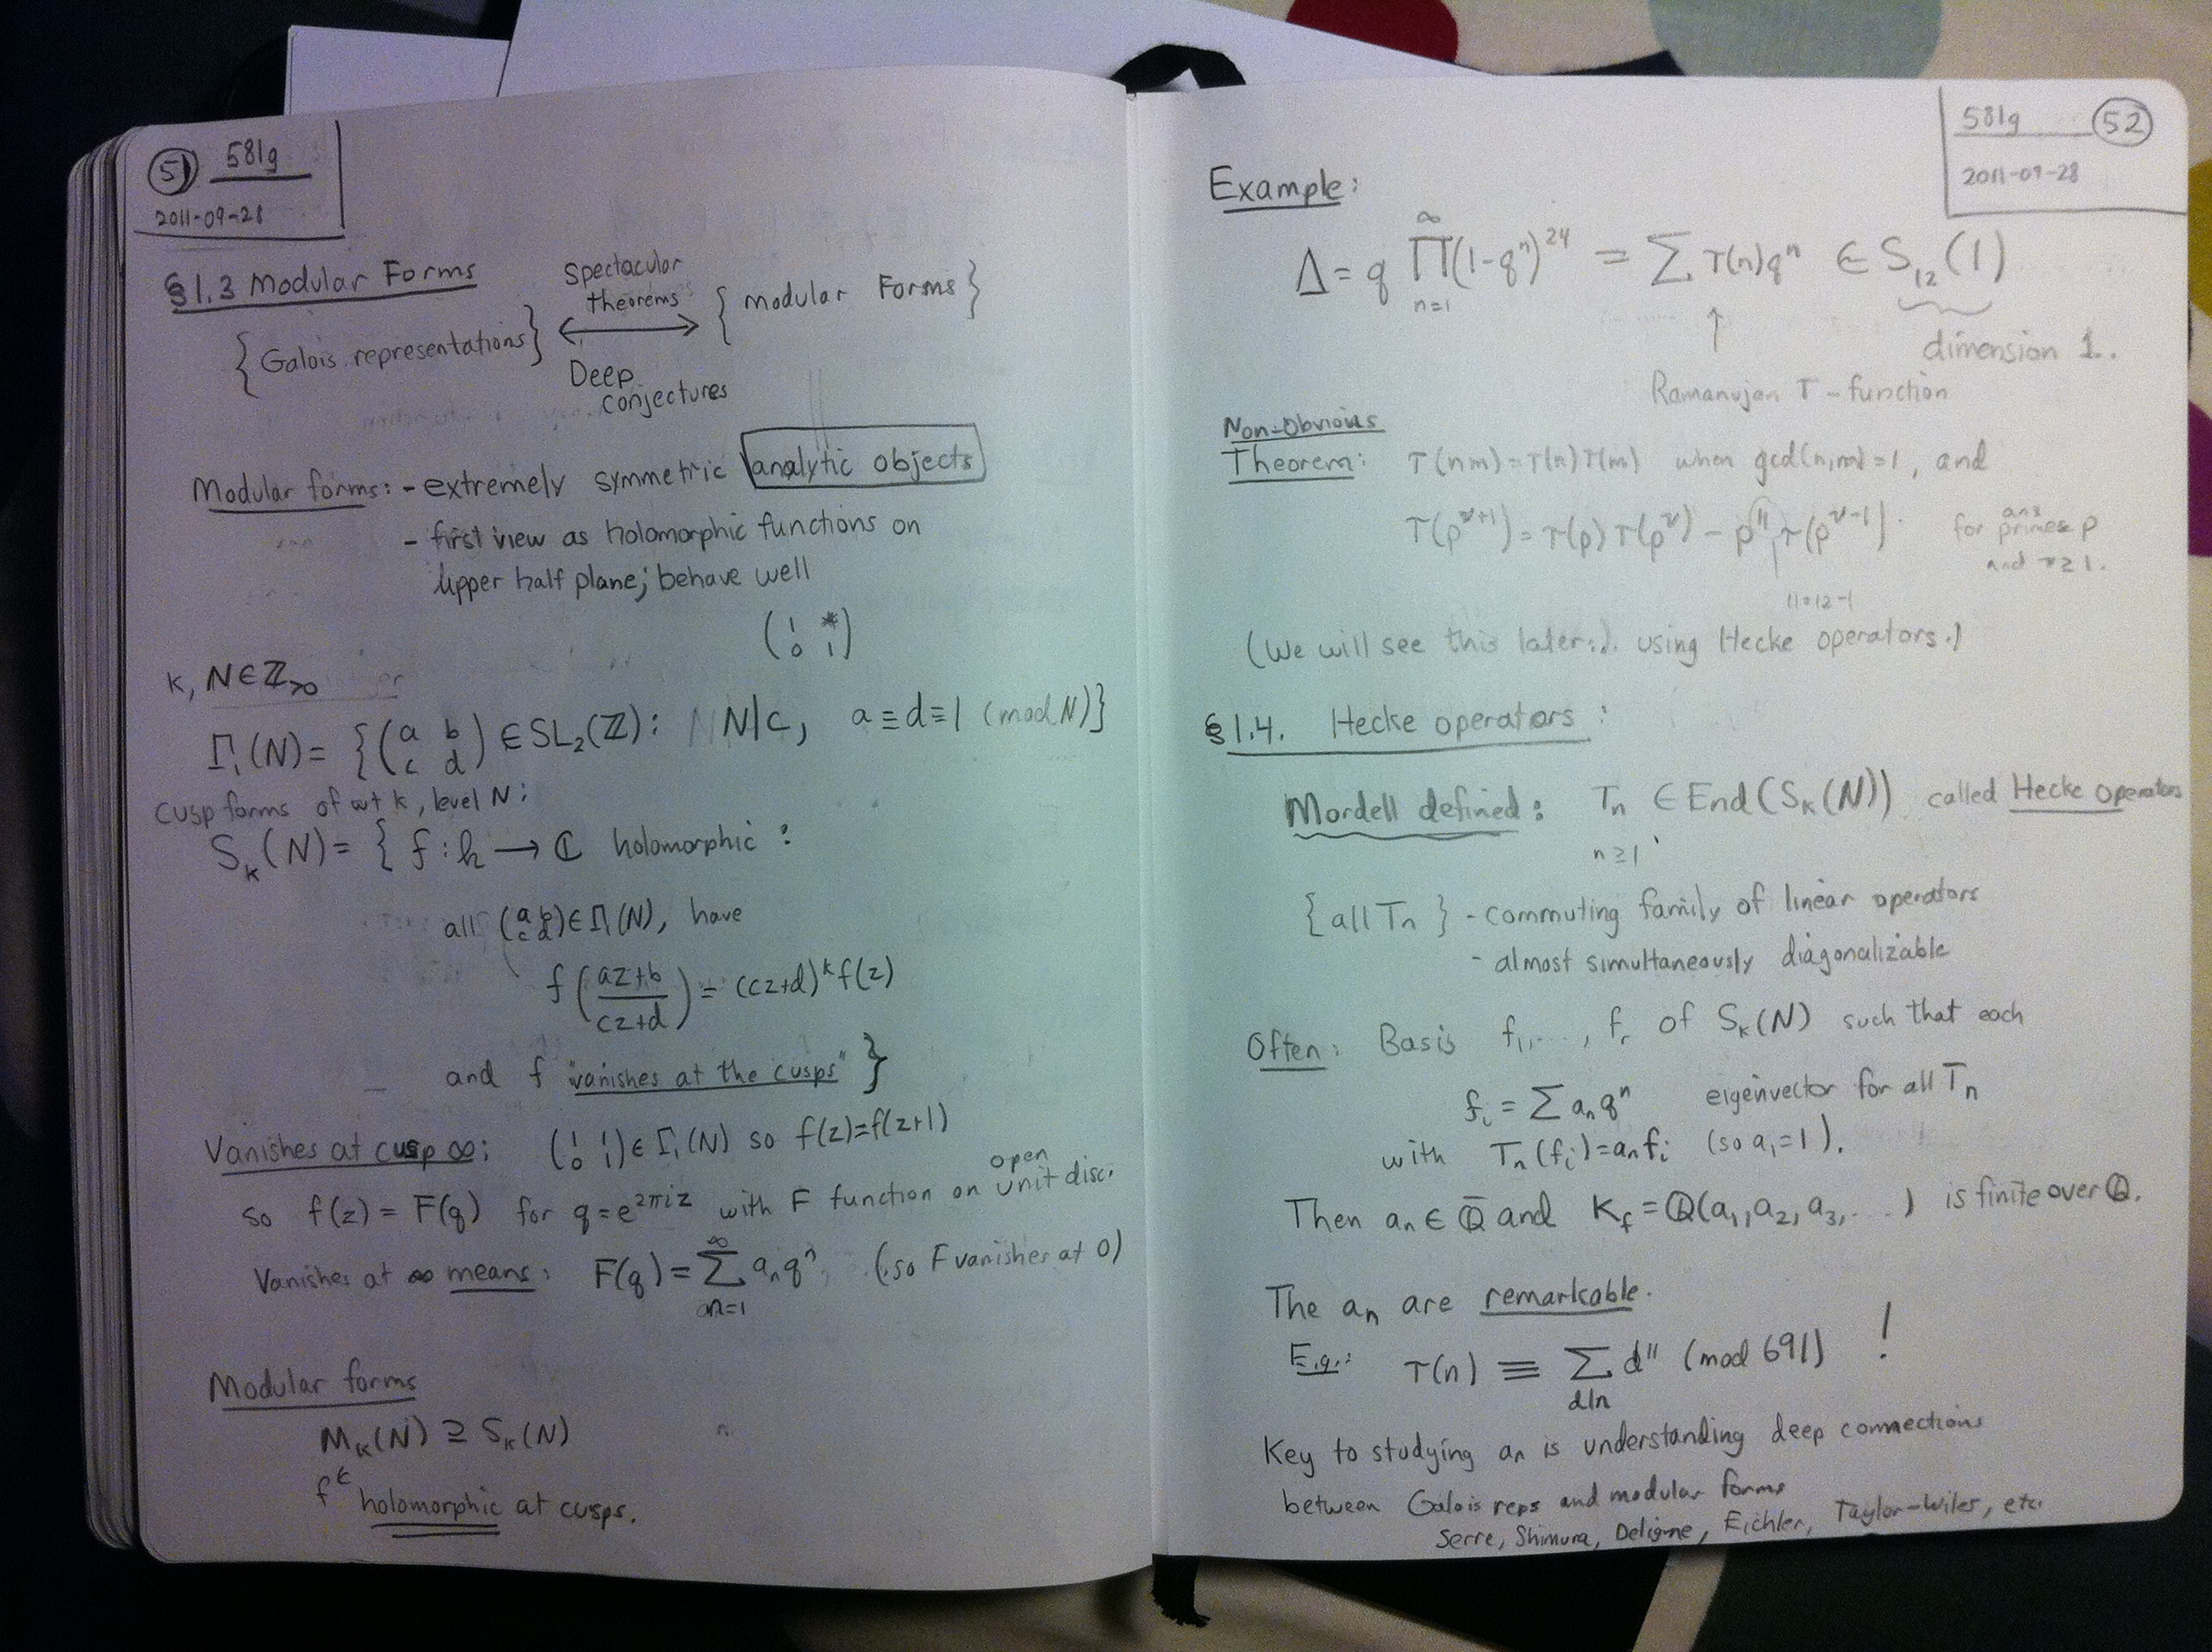 51 581g
2011-09-28
§1.3 Modular Forms
{Galois representations} ⟷ {modular Forms}
Spectacular
theorems
Deep
conjectures
Modular forms: - extremely symmetric analytic objects
- first view as holomorphic functions on
upper half plane; behave well
(1 * 0 1)
k, N ∈ ℤ>0
Γ₁(N) = {(a b c d) ∈ SL₂(ℤ): N|c, a ≡ d ≡ 1 (mod N)}
Cusp forms of wt k, level N:
S_k(N) = { f: h → ℂ holomorphic :
all (a b c d) ∈ Γ₁(N), have
f((az+b)/(cz+d)) = (cz+d)^k f(z)
and f "vanishes at the cusps" }
Vanishes at cusp ∞: (1 1 0 1) ∈ Γ₁(N) so f(z)=f(z+1)
so f(z) = F(q) for q = e^{2πiz} with F function on open unit disc.
Vanishes at ∞ means: F(q) = ∑_{n=1}^∞ a_n q^n, (so F vanishes at 0)
Modular forms
M_k(N) ⊇ S_k(N)
f ∈
holomorphic at cusps.
581g 52
2011-09-28
Example:
Δ = q ∏_{n=1}^∞ (1-q^n)^24 = ∑ τ(n)q^n ∈ S₁₂(1)
↑
dimension 1.
Ramanujan τ-function
Non-Obvious
Theorem: τ(nm) = τ(n)τ(m) when gcd(n,m)=1, and
τ(p^{ν+1}) = τ(p)τ(p^ν) - p^11 τ(p^{ν-1}) for primes p
and ν ≥ 1.
11=12-1
(We will see this later.). using Hecke operators.)
§1.4. Hecke operators:
Mordell defined: T_n ∈ End(S_k(N)) called Hecke operators
n ≥ 1
{all T_n} - commuting family of linear operators
- almost simultaneously diagonalizable
Often: Basis f_1, ..., f_r of S_k(N) such that each
f_i = ∑ a_n q^n eigenvector for all T_n
with T_n(f_i) = a_n f_i (so a_1=1).
Then a_n ∈ ℚ̄ and K_f = ℚ(a_1, a_2, a_3, ...) is finite over ℚ.
The a_n are remarkable.
E.g.: τ(n) ≡ ∑_{d|n} d^11 (mod 691) !
Key to studying a_n is understanding deep connections
between Galois reps and modular forms
Serre, Shimura, Deligne, Eichler, Taylor-Wiles, etc.